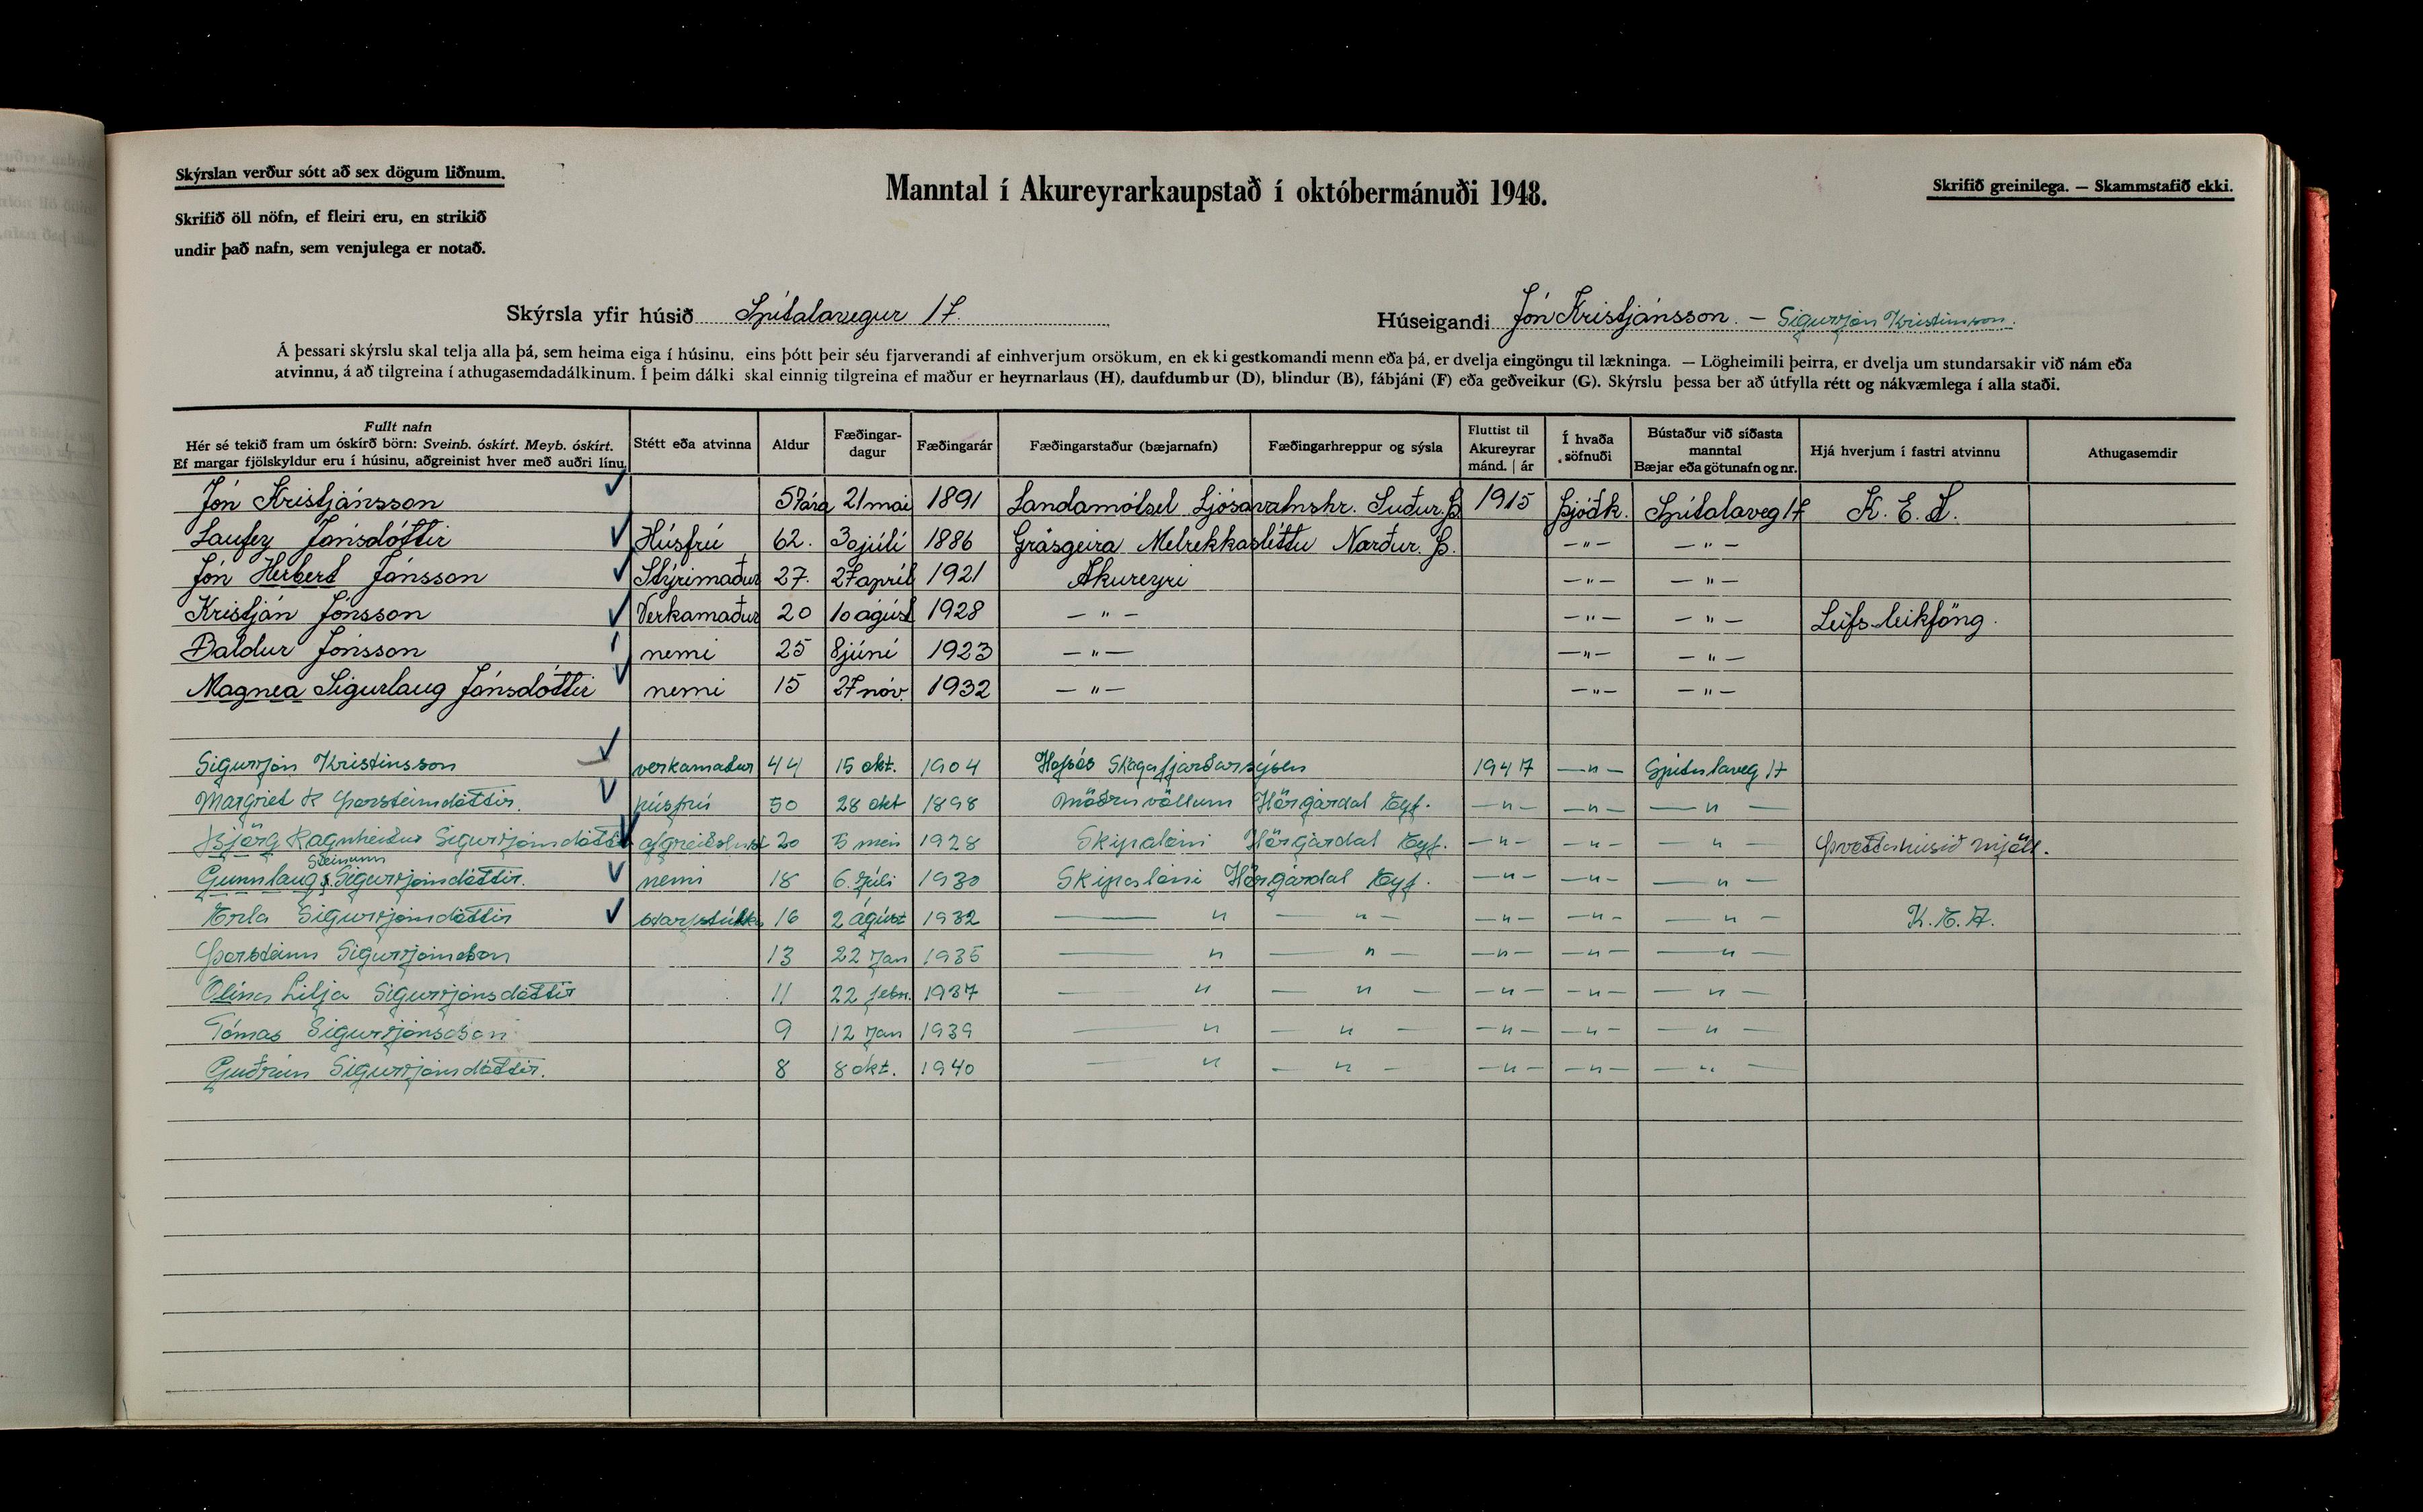 Skýrslan verður sótt að sex dögum liðnum.
Skrifið öll nöfn, ef fleiri eru, en strikið
undir það nafn, sem venjulega er notað.
Manntal í Akureyrarkaupstað í októbermánuði 1948.
Skrifið greinilega. — Skammstafið ekki.
Skýrsla yfir húsið Spítalavegur 17.
Húseigandi Jón Kristjánsson. — Sigurjón Kristinsson.
Á þessari skýrslu skal telja alla þá, sem heima eiga í húsinu, eins þótt þeir séu fjarverandi af einhverjum orsökum, en ekki gestkomandi menn eða þá, er dvelja eingöngu til lækninga. — Lögheimili þeirra, er dvelja um stundarsakir við nám eða
atvinnu, á að tilgreina í athugasemdadálkinum. Í þeim dálki skal einnig tilgreina ef maður er heyrnarlaus (H), daufdumbur (D), blindur (B), fábjáni (F) eða geðveikur (G). Skýrslu þessa ber að útfylla rétt og nákvæmlega í alla staði.
Fullt nafn
Hér sé tekið fram um óskírð börn: Sveinb. óskírt. Meyb. óskírt.
Ef margar fjölskyldur eru í húsinu, aðgreinist hver með auðri línu.
Stétt eða atvinna
Aldur
Fæðingar-
dagur
Fæðingarár
Fæðingarstaður (bæjarnafn)
Fæðingarhreppur og sýsla
Fluttist til
Akureyrar
mánd. | ár
Í hvaða
söfnuði
Bústaður við síðasta
manntal
Bæjar eða götunafn og nr.
Hjá hverjum í fastri atvinnu
Athugasemdir
Jón Kristjánsson 57ára 21 mai 1891 Landamótsel Ljósavatnshr. Suður.Þ. 1915 Þjóðk. Spítalaveg 17 K. E. A.
Laufey Jónsdóttir Húsfrú 62. 30júlí 1886 Grásgeira Melrekkasléttu Norður. Þ. —"— —"—
Jón Herbert Jónsson Stýrimaður 27. 27apríl 1921 Akureyri —"— —"—
Kristján Jónsson Verkamaður 20 10 ágúst 1928 —"— —"— —"— Leifs-leikföng.
Baldur Jónsson nemi 25 8júní 1923 —"— —"— —"—
Magnea Sigurlaug Jónsdóttir nemi 15 27 nóv. 1932 —"— —"— —"—
Sigurjón Kristinsson verkamaður 44 15 okt. 1904 Hofsós Skagafjarðarsýslu 1947 —"— Spítalaveg 17
Margrét R Þorsteinsdóttir. húsfrú 50 28 okt 1898 Möðruvöllum Hörgárdal Eyf. —"— —"— —"—
Björg Ragnheiður Sigurjónsdóttir 20 5 mai 1928 Skipalóni Hörgárdal Eyf. —"— —"— —"— Þvottahúsið Mjöll.
Steinunn
Gunnlaug Sigurjónsdóttir. nemi 18 6. júlí 1930 Skipalóni Hörgárdal Eyf. —"— —"— —"—
Erla Sigurjónsdóttir 16 2 ágúst 1932 —"— —"— —"— —"— —"— K. E. A.
Þorsteinn Sigurjónsson 13 22 Jan 1935 —"— —"— —"— —"— —"—
Ólína Lilja Sigurjónsdóttir 11 22 febr. 1937 —"— —"— —"— —"— —"—
Tómas Sigurjónsson 9 12 Jan 1939 —"— —"— —"— —"— —"—
Guðrún Sigurjónsdóttir. 8 8 okt. 1940 —"— —"— —"— —"— —"—